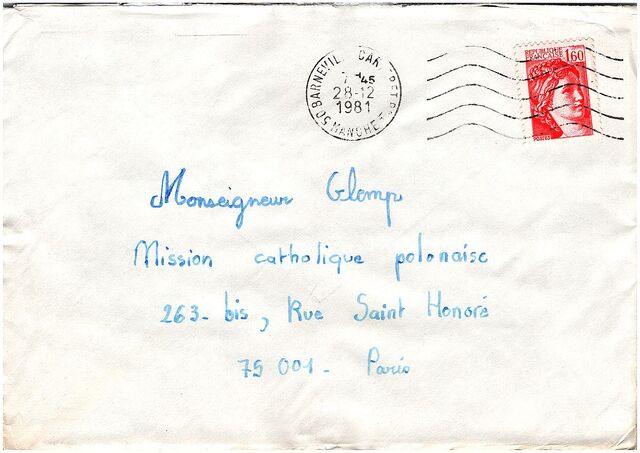 BARNEVILLE CARTERET
7 H45
28-12
1981
50 MANCHE
REPUBLIQUE FRANCAISE
1,60
POSTES
Monseigneur Glemp
Mission catholique polonaise
263- bis, Rue Saint Honoré
75 001- Paris